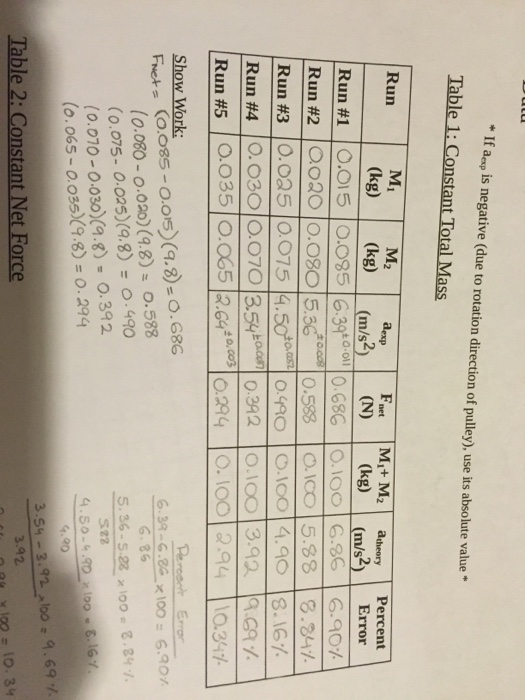 * If aexp is negative (due to rotation direction of pulley), use its absolute value *
Table 1: Constant Total Mass
Run M1 (kg) M2 (kg) aexp (m/s²) Fnet (N) M1+ M2 (kg) atheory (m/s²) Percent Error
Run #1 0.015 0.085 6.39±0.011 0.686 0.100 6.86 6.90%
Run #2 0.020 0.080 5.36±0.008 0.588 0.100 5.88 8.84%
Run #3 0.025 0.075 4.50±0.052 0.490 0.100 4.90 8.16%
Run #4 0.030 0.070 3.54 0.392 0.100 3.92 9.69%
Run #5 0.035 0.065 2.64±0.003 0.294 0.100 2.94 10.34%
Show Work:
Fnet = (0.085-0.015)(9.8)=0.686
(0.080-0.020)(9.8) = 0.588
(0.075-0.025)(9.8) = 0.490
(0.070-0.030)(9.8) = 0.392
(0.065-0.035)(9.8)=0.294
Percent Error
6.39-6.86 x100 = 6.90%
6.86
5.36-5.88 x100 = 8.84%
588
4.50-4.90 x100 = 8.16%
4.90
3.54-3.92 x100 = 9.69%
3.92
x100 = 10.34
Table 2: Constant Net Force